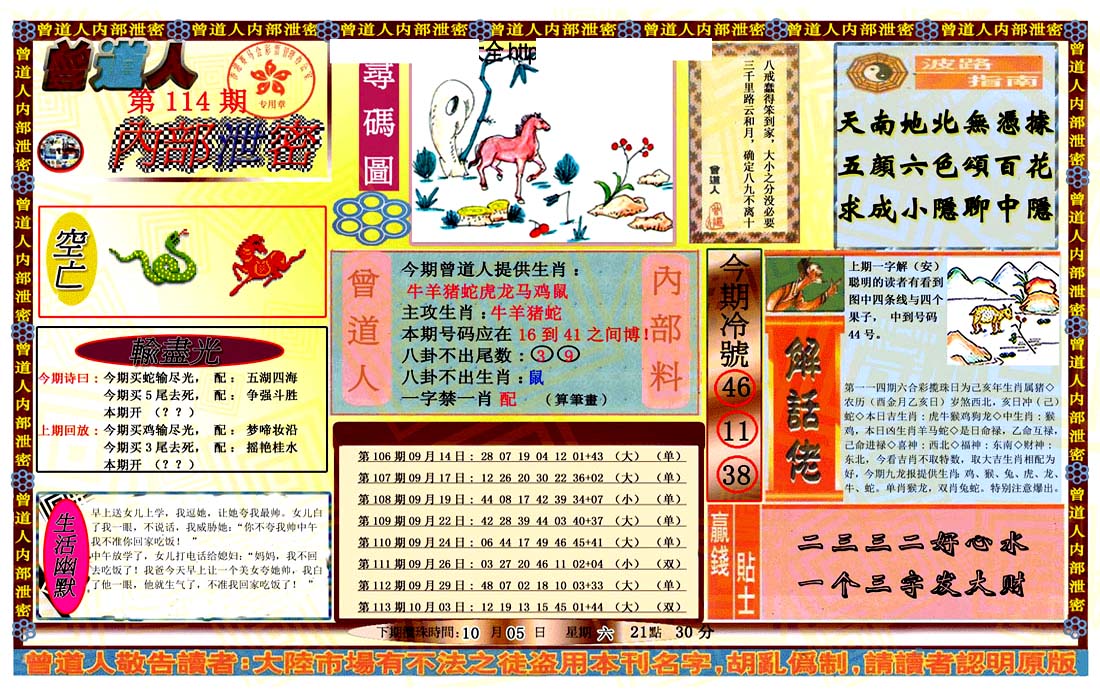 曾道人内部泄密 曾道人内部泄密 曾道人内部泄密 曾道人内部泄密 曾道人内部泄密 曾道人内部泄密 曾道人内部泄密
曾道人
第 114 期
内部泄密
专用章
空亡
輸盡光
今期诗曰：今期买蛇输尽光， 配： 五湖四海
今期买 5 尾去死， 配： 争强斗胜
本期开 （？？）
上期回放：今期买鸡输尽光， 配： 梦啼妆沿
今期买 3 尾去死， 配： 摇艳桂水
本期开 （？？）
生活幽默
早上送女儿上学，我逗她，让她夸我最帅。女儿白
了我一眼，不说话，我威胁她：“你不夸我帅中午
我不准你回家吃饭！ ”
中午放学了，女儿打电话给媳妇：“妈妈，我不回
去吃饭了！我爸今天早上让一个美女夸她帅，我白
了他一眼，他就生气了，不准我回家吃饭了！ ”
大全 http
尋碼圖
八戒蠢得笨到家，大小之分没必要
三千里路云和月，确定八九不离十
曾道人
波路
指南
天南地北無憑據
五顔六色頌百花
求成小隱聊中隱
曾道人
内部料
今期曾道人提供生肖：
牛羊猪蛇虎龙马鸡鼠
主攻生肖：牛羊猪蛇
本期号码应在 16 到 41 之间博！
八卦不出尾数：③ ⑨
八卦不出生肖：鼠
一字禁一肖 配 （算筆畫）
第 106 期 09 月 14 日： 28 07 19 04 12 01+43 （大） （单）
第 107 期 09 月 17 日： 12 26 20 30 22 36+02 （大） （单）
第 108 期 09 月 19 日： 44 08 17 42 39 34+07 （小） （单）
第 109 期 09 月 22 日： 42 28 39 44 03 40+37 （大） （单）
第 110 期 09 月 24 日： 06 44 17 49 46 45+41 （大） （单）
第 111 期 09 月 26 日： 03 27 20 46 11 02+04 （小） （双）
第 112 期 09 月 29 日： 48 07 02 18 10 03+33 （大） （单）
第 113 期 10 月 03 日： 12 19 13 15 45 01+44 （大） （双）
今期冷號
46
11
38
上期一字解（安）
聪明的读者有看到
图中四条线与四个
果子， 中到号码
44 号。
解話佬
第一一四期六合彩搅珠日为己亥年生肖属猪◇
农历（酉金月乙亥日）岁煞西北，亥日冲（己）
蛇◇本日吉生肖：虎牛猴鸡狗龙◇中生肖：猴
鸡，本日凶生肖羊马蛇◇是日命禄，乙命互禄，
己命进禄◇喜神：西北◇福神：东南◇财神：
东北，今看吉肖不取特数，取大吉生肖相配为
好，今期九龙报提供生肖 鸡、猴、兔、虎、龙、
牛、蛇。单肖猴龙，双肖兔蛇。特别注意爆出。
贏錢
貼士
二三三二好心水
一个三字发大财
下期攪珠時間：10 月 05 日 星期 六 21點 30 分
曾道人敬告讀者：大陸市場有不法之徒盗用本刊名字，胡亂僞制，請讀者認明原版